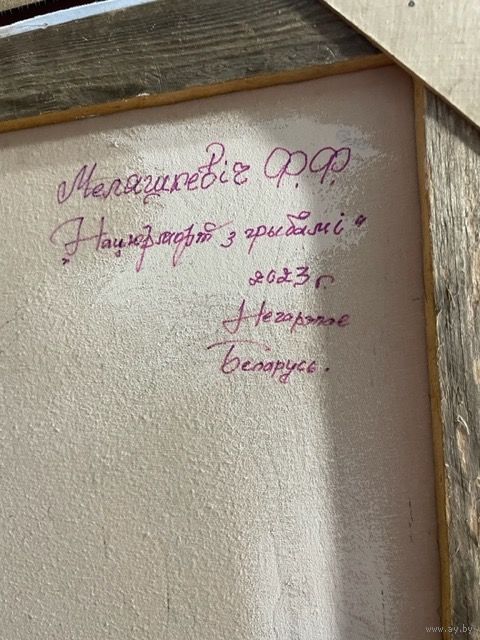 Мелашкевіч Ф.Ф.
"Нацюрморт з грыбамі"
2023 г.
Негарэлае
Беларусь.
www.ay.by